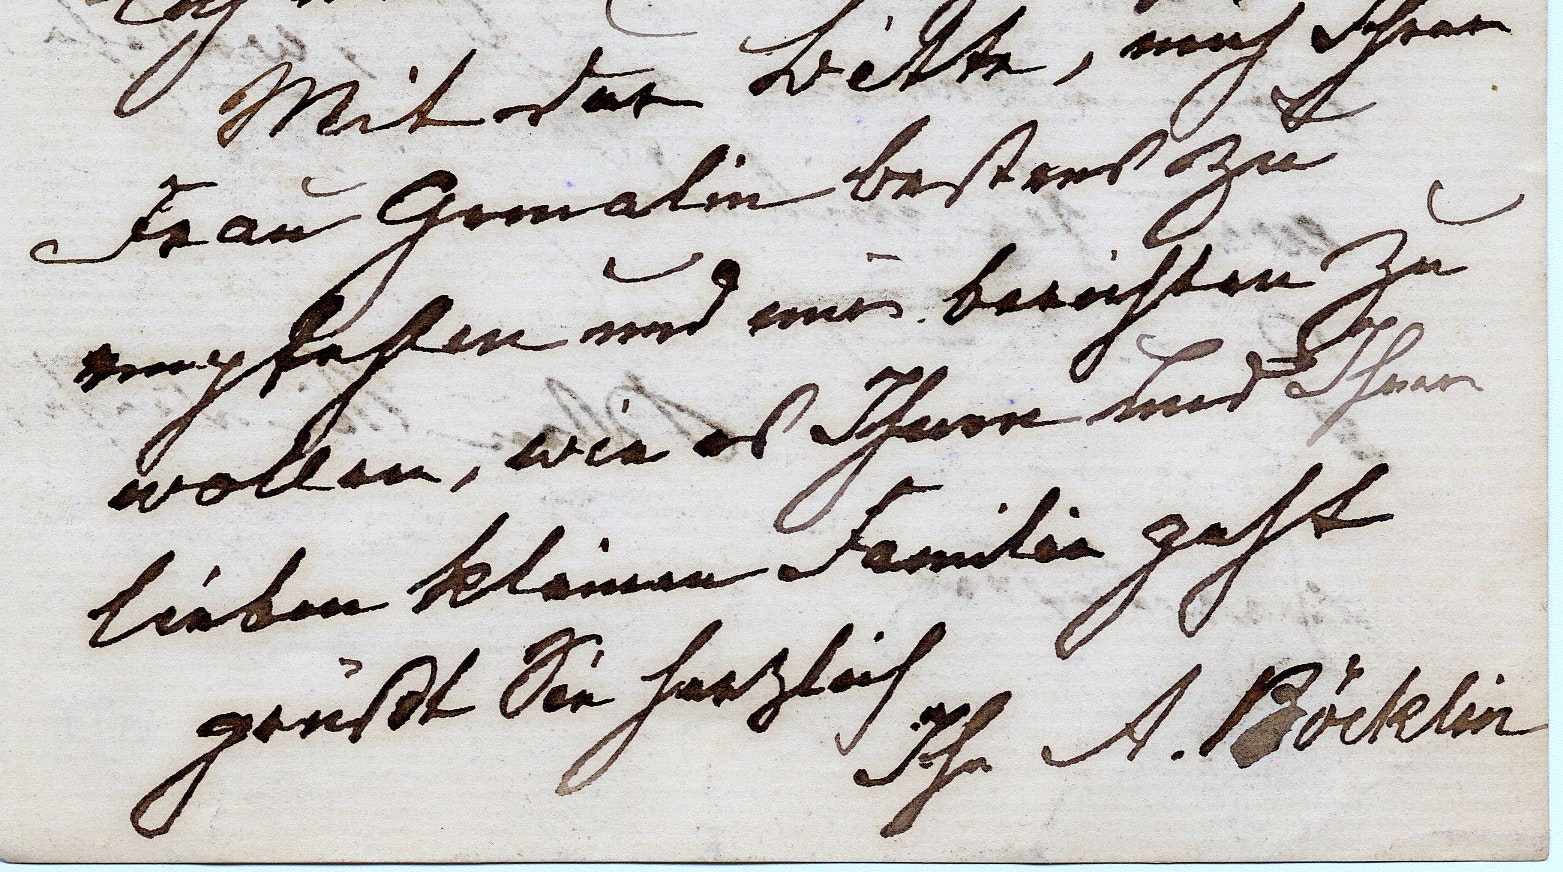 Mit der Bitte, mich Ihrer
Frau Gemalin bestens zu
empfehlen und mir berichten zu
wollen, wie es Ihnen und Ihrer
lieben kleinen Familie geht
grüßt Sie herzlich
Ihr A. Böcklin